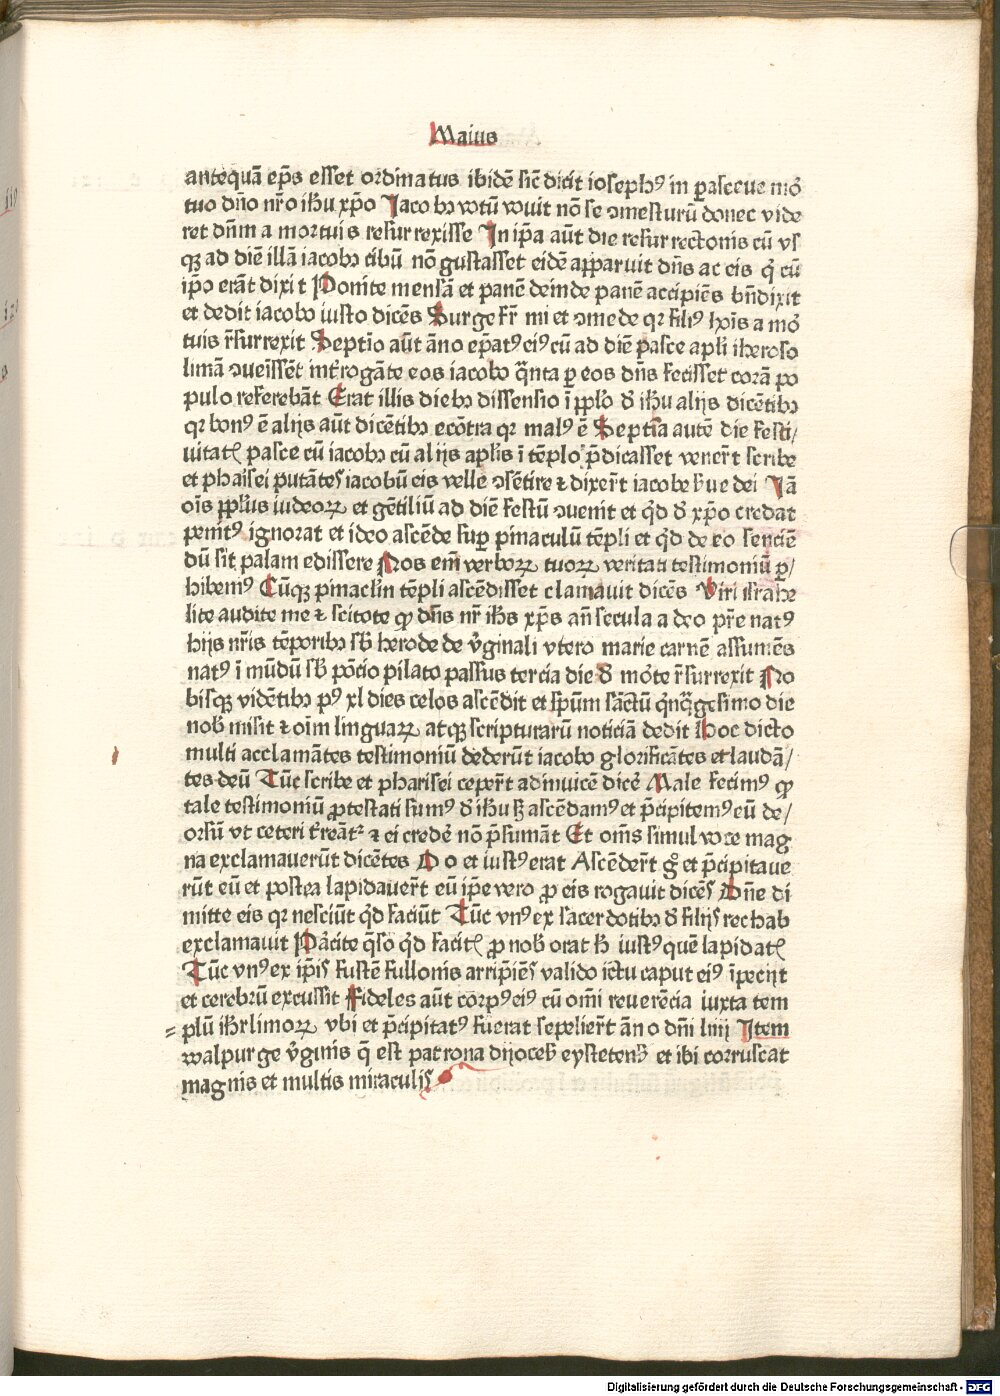 Maius
anteq̃uã ep̃s esset ordinatus ibidẽ sic̃ dicit iosephꝰ in ꝑasceue mõ
tuo dño nr̃o ih̃u xp̃o Jacobꝫ votũ vouit nõ se ꝯmesturũ donec vide
ret dñm a mortuis resurrexisse In ip̃a aũt die resurrectonis cũ vs
qꝫ ad diẽ illã iacobꝫ cibũ nõ gustasset eidẽ apparuit dñs ac eis q̇ cũ
ip̃o erãt dixit Ponite mensã et panẽ deinde panẽ accipiẽs bñdixit
et dedit iacobo iusto dicẽs Surge fr̃ mi et ꝯmede qꝛ filiꝰ hoĩs a mõ
tuis r̃surrexit Septĩo aũt ãno ep̃atꝰ eiꝰ cũ ad diẽ pasce apl̃i iheroso
limã ꝯueĩssẽt int̃rogãte eos iacobo q̃nta ꝑ eos dñs fecisset corã po
pulo referebãt Erat illis diebꝫ dissensio ĩ ppl̃o ð ih̃u alijs dicẽtibꝫ
qꝛ bonꝰ ẽ alijs aũt dicẽtibꝫ ecõtra qꝛ malꝰ ẽ Septĩa autẽ die festi/
uitatꝭ pasce cũ iacobꝫ cũ alijs apl̃is ĩ tẽplo p̃dicasset vener̃t scribe
et phaĩsei putãtes iacobũ eis velle ꝯsẽtire ⁊ dixer̃t iacobe s̃ue dei Jã
oĩs ppl̃us iudeoꝝ et gẽtiliũ ad diẽ festũ ꝯuenit et q̃d ð xp̃o credat
penitꝰ ignorat et ideo ascẽde suꝑ pinaculũ tẽpli et q̃d de eo senciẽ
dũ sit palam edissere Nos em̃ verboꝝ tuoꝝ veritati testimoniũ ꝑ/
hibemꝰ Cũqꝫ pinacl̃m tẽpli ascẽdisset clamauit dicẽs Viri israhe
lite audite me ⁊ scitote ꝙ dñs nr̃ ih̃s xp̃s añ secula a deo pr̃e natꝰ
hijs nr̃is tẽporibꝫ sb̃ herode de v̇ginali vtero marie carnẽ assumẽs
natꝰ ĩ mũdũ sb̃ põcio pilato passus tercia die ð mõte r̃surrexit No
bisqꝫ vidẽtibꝫ pꝰ xl dies celos ascẽdit et sp̃um sãctũ q̇nq̃gesimo die
nob̃ misit ⁊ oĩm linguaꝝ atqꝫ scripturarũ noticiã dedit Hoc dicto
multi acclamãtes testimoniũ dederũt iacobo glorificãtes et laudã/
tes deũ Tũc scribe et pharisei ceper̃t adinuicẽ dicẽ Male fecimꝰ ꝙ
tale testimoniũ ꝓtestati sumꝰ ð ih̃u sꝫ ascẽdamꝰ et p̃cipitemꝰ eũ de/
orsũ vt ceteri t̃reãt᷑ ⁊ ei credẽ nõ p̃sumãt Et om̃s simul voce mag
na exclamauerũt dicẽtes O o et iustꝰ erat Ascẽder̃t g̊ et p̃cipitaue
rũt eũ et postea lapidauer̃t eũ ip̃e vero ꝓ eis rogauit dicẽs Dñe di
mitte eis qꝛ nesciũt q̃d faciũt Tũc vnꝰ ex sacerdotibꝫ ð filijs rechab
exclamauit Pa̓cite q̃so q̃d facitꝭ ꝓ nob̃ orat h̃ iustꝰ quẽ lapidatꝭ
Tũc vnꝰ ex ip̃is fustẽ fullonis arripiẽs valido ictu caput eiꝰ ĩpecijt
et cerebrũ excussit Fideles aũt corpꝰ eiꝰ cũ om̃i reuerẽcia iuxta tem
plũ ihr̃limoꝝ vbi et p̃cipitatꝰ fuerat sepelier̃t ãno dñi lxiij Item
walpurge v̇ginis q̃ est patrona dijoceß eystetenß et ibi corruscat
magnis et multis miraculis